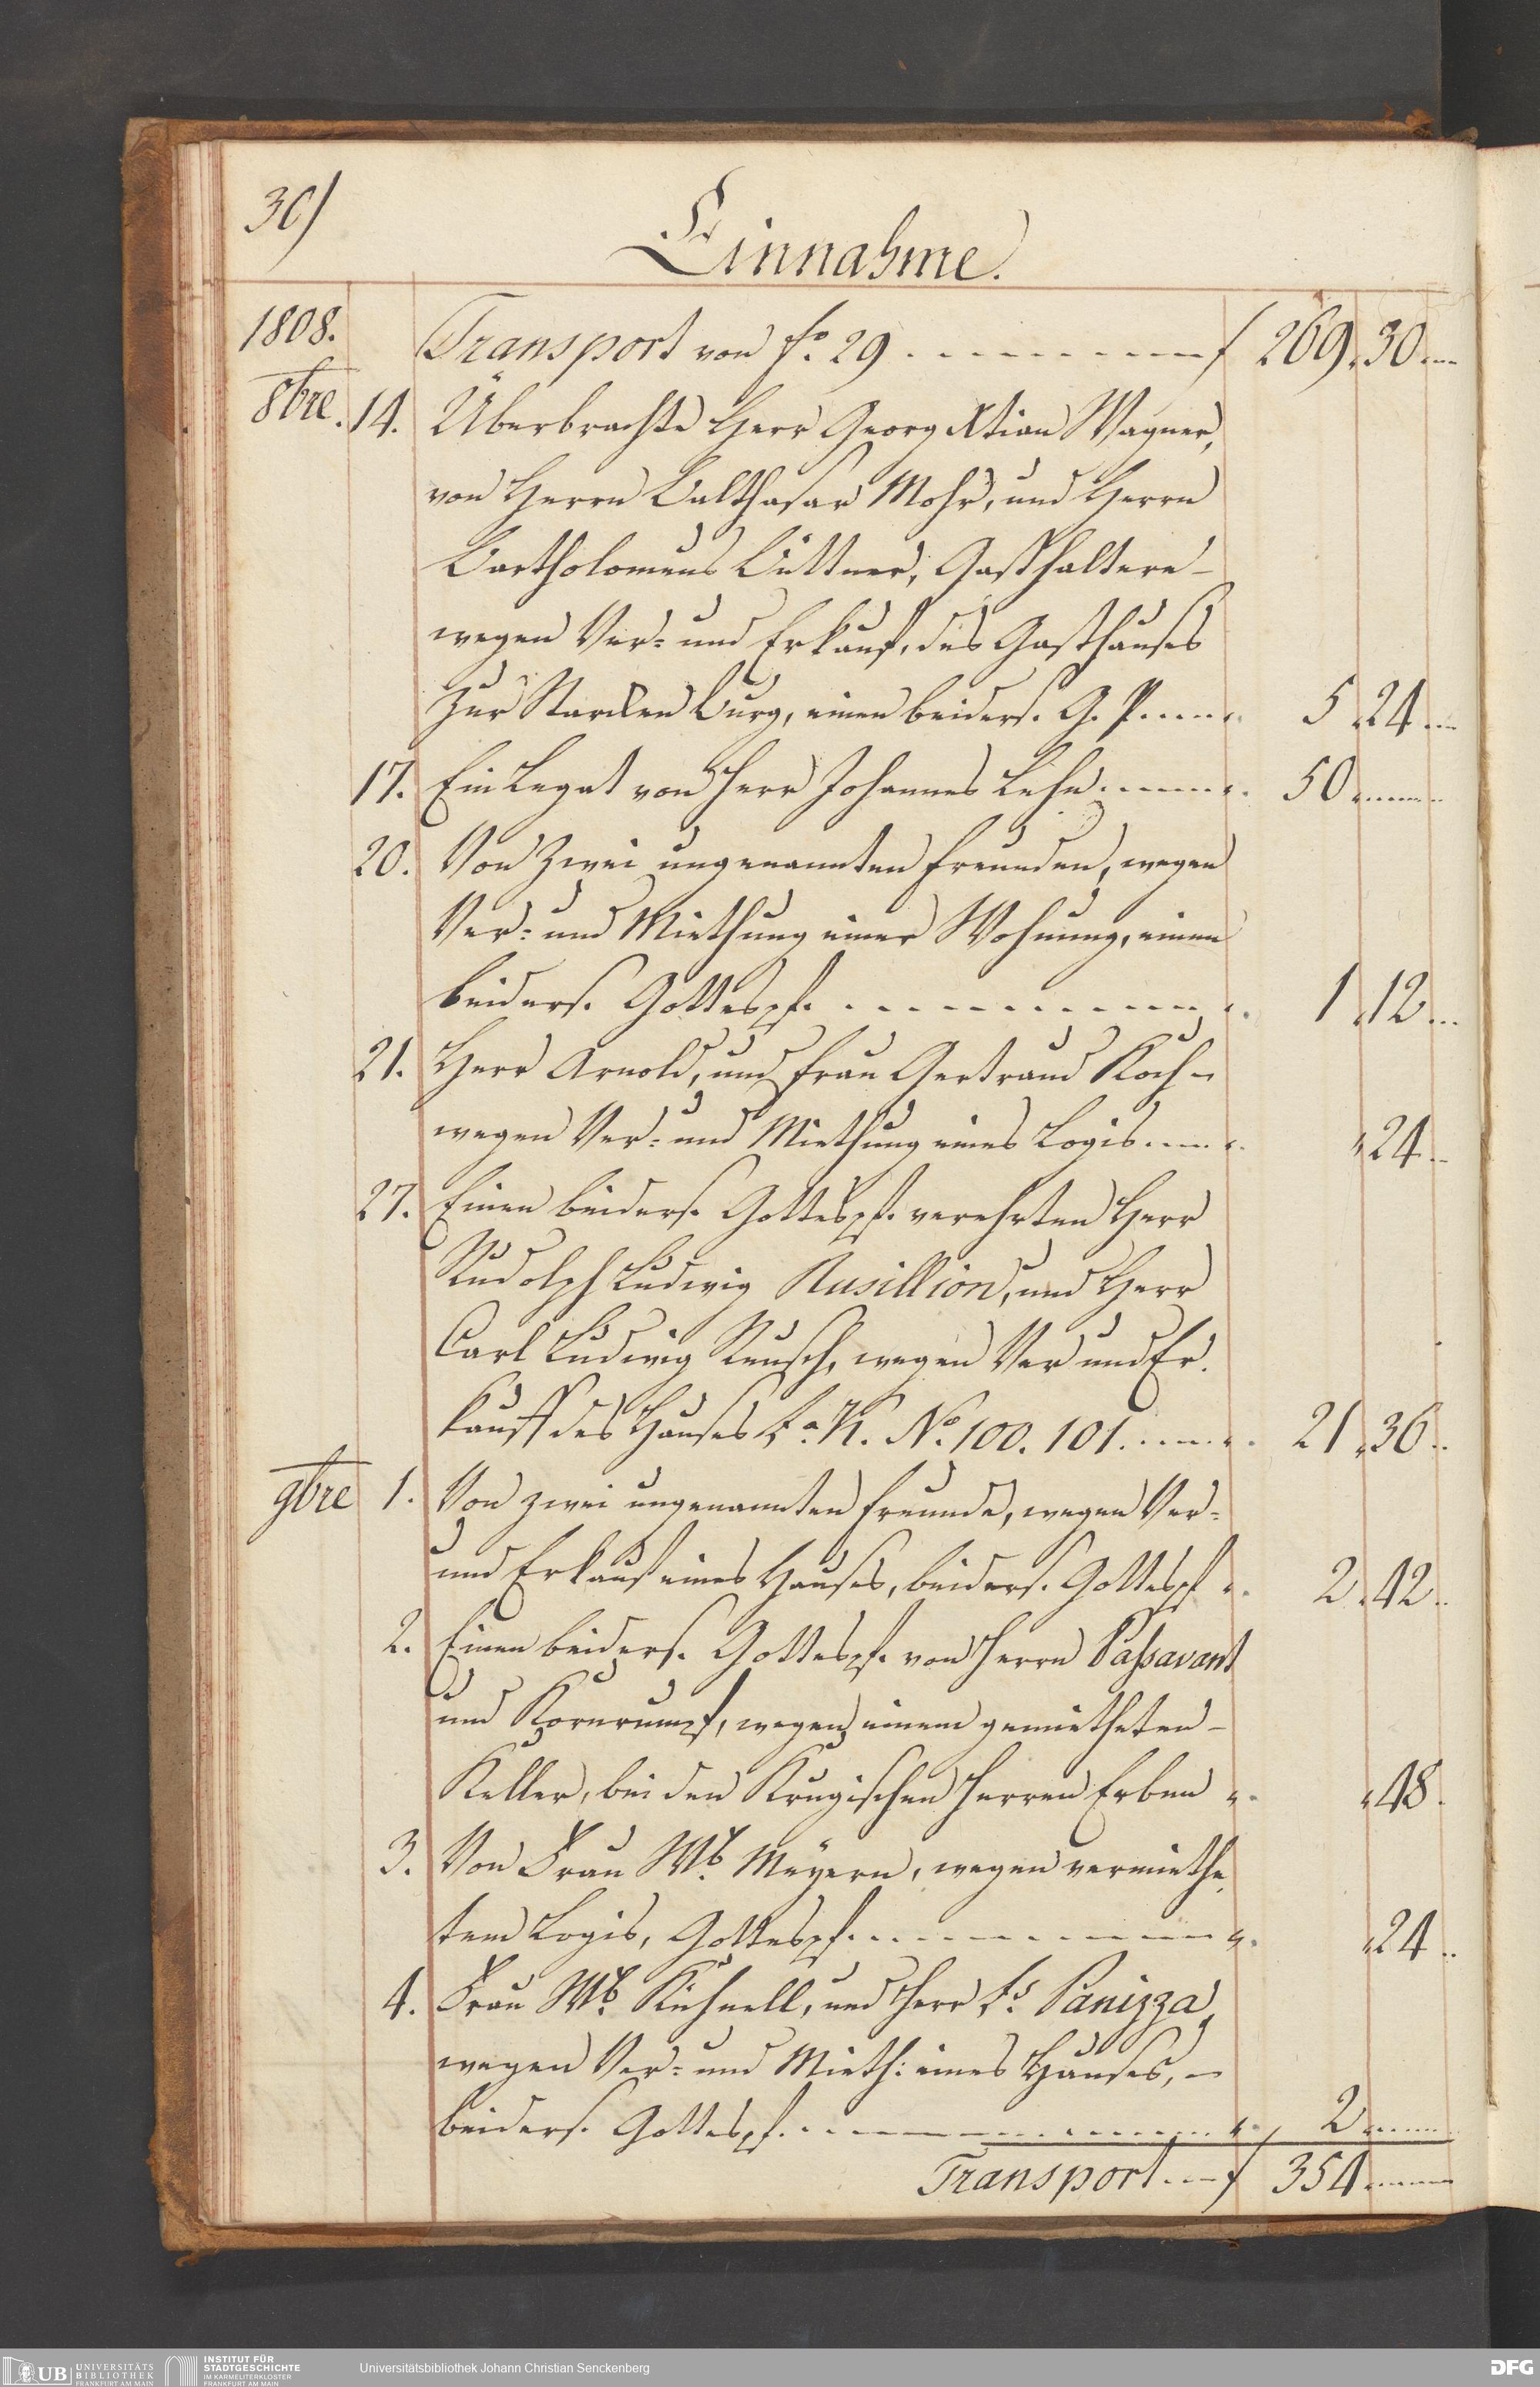 30)
Einnahme.
1808.
Transport von fo. 29 . . . . . . . . . f 269. 30. —
8bre. 14. Überbrachte Herr Georg Xtian Wagner,
von Herrn Balthasar Mohr, und Herrn
Bartholomeus Büttner, Gasthaltere –
wegen Ver- und Erkauf, des Gasthauses
zur Starcken Burg, einen beiders. G. P. . . . . 5. 24. —
17. Ein Legat von Herr Johannes Lehn . . . . . 50. —
20. Von Zwei ungenannten Freunden, wegen
Ver- und Miethung einer Wohnung, einen
beiders. Gottespf. . . . . . . . . . . 1. 12. —
21. Herr Arnold, und Frau Gertraud Koch –
wegen Ver- und Miethung eines Logis . . . . „ 24. —
27. Einen beiders. Gottespf. verehrten Herr
Rudolph Ludwig Rusillion, und Herr
Carl Ludwig Reusch, wegen Ver und Er-
kauff des Hauses La. K. No. 100. 101. . . . . 21. 36. .
9bre 1. Von zwei ungenannten Freunde, wegen Ver-
und Erkauf eines Hauses, beiders. Gottespf „ 2. 42. .
2. Einen beiders. Gottespf. von Herrn Passavant
und Kornrumpf, wegen einem gemietheten –
Keller, bei den Krugischen Herren Erben „ „ 48.
3. Von Frau Wb. Meÿern, wegen vermiethe-
tem Logis, Gottespf. . . . . . . . . . „ 24. .
4. Frau Wb. Kühnell, und Herr Ls. Panizza,
wegen Ver- und Mieth: eines Hauses, –
beiders. Gottespf. . . . . . . . . . „ 2. —
Transport . . – f 354. —
UB UNIVERSITÄTS
BIBLIOTHEK
FRANKFURT AM MAIN
INSTITUT FÜR
STADTGESCHICHTE
IM KARMELITERKLOSTER
FRANKFURT AM MAIN
Universitätsbibliothek Johann Christian Senckenberg
DFG